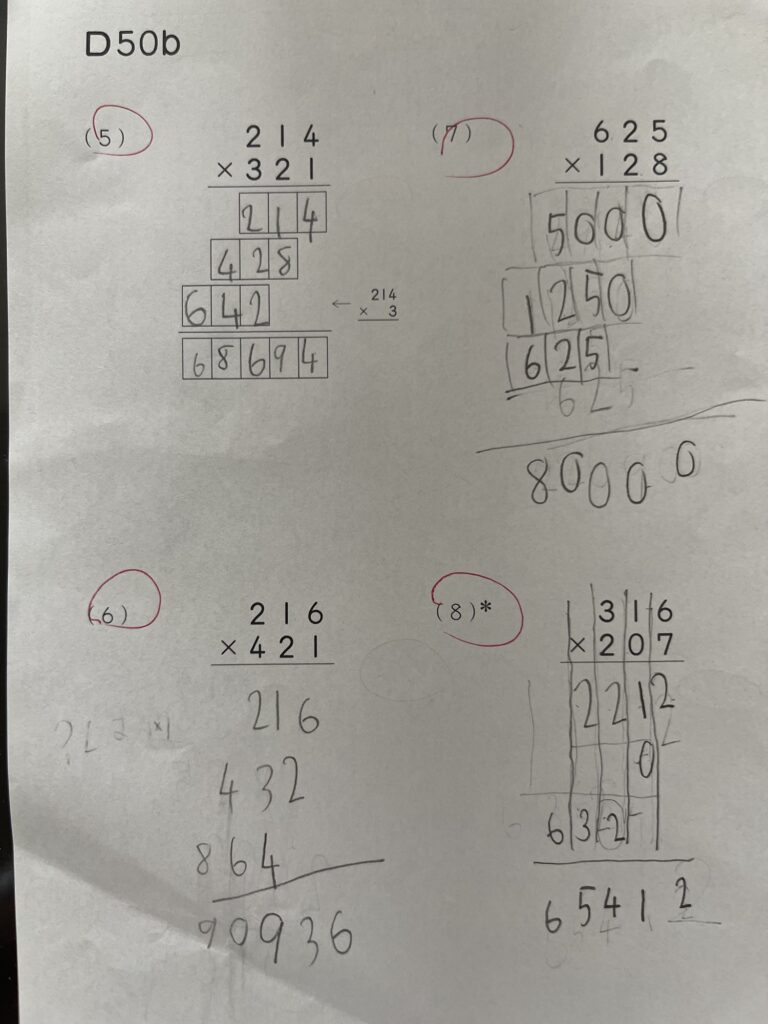 D50b
(5)
214
×321
214
428
642
← 214
× 3
68694
(7)
625
×128
5000
1250
625
625
80000
(6)
216
×421
216
432
864
90936
(8)*
316
×207
2212
0
632
65412